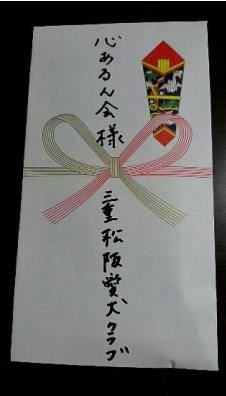 心あるん会様
三重松阪賢犬クラブ